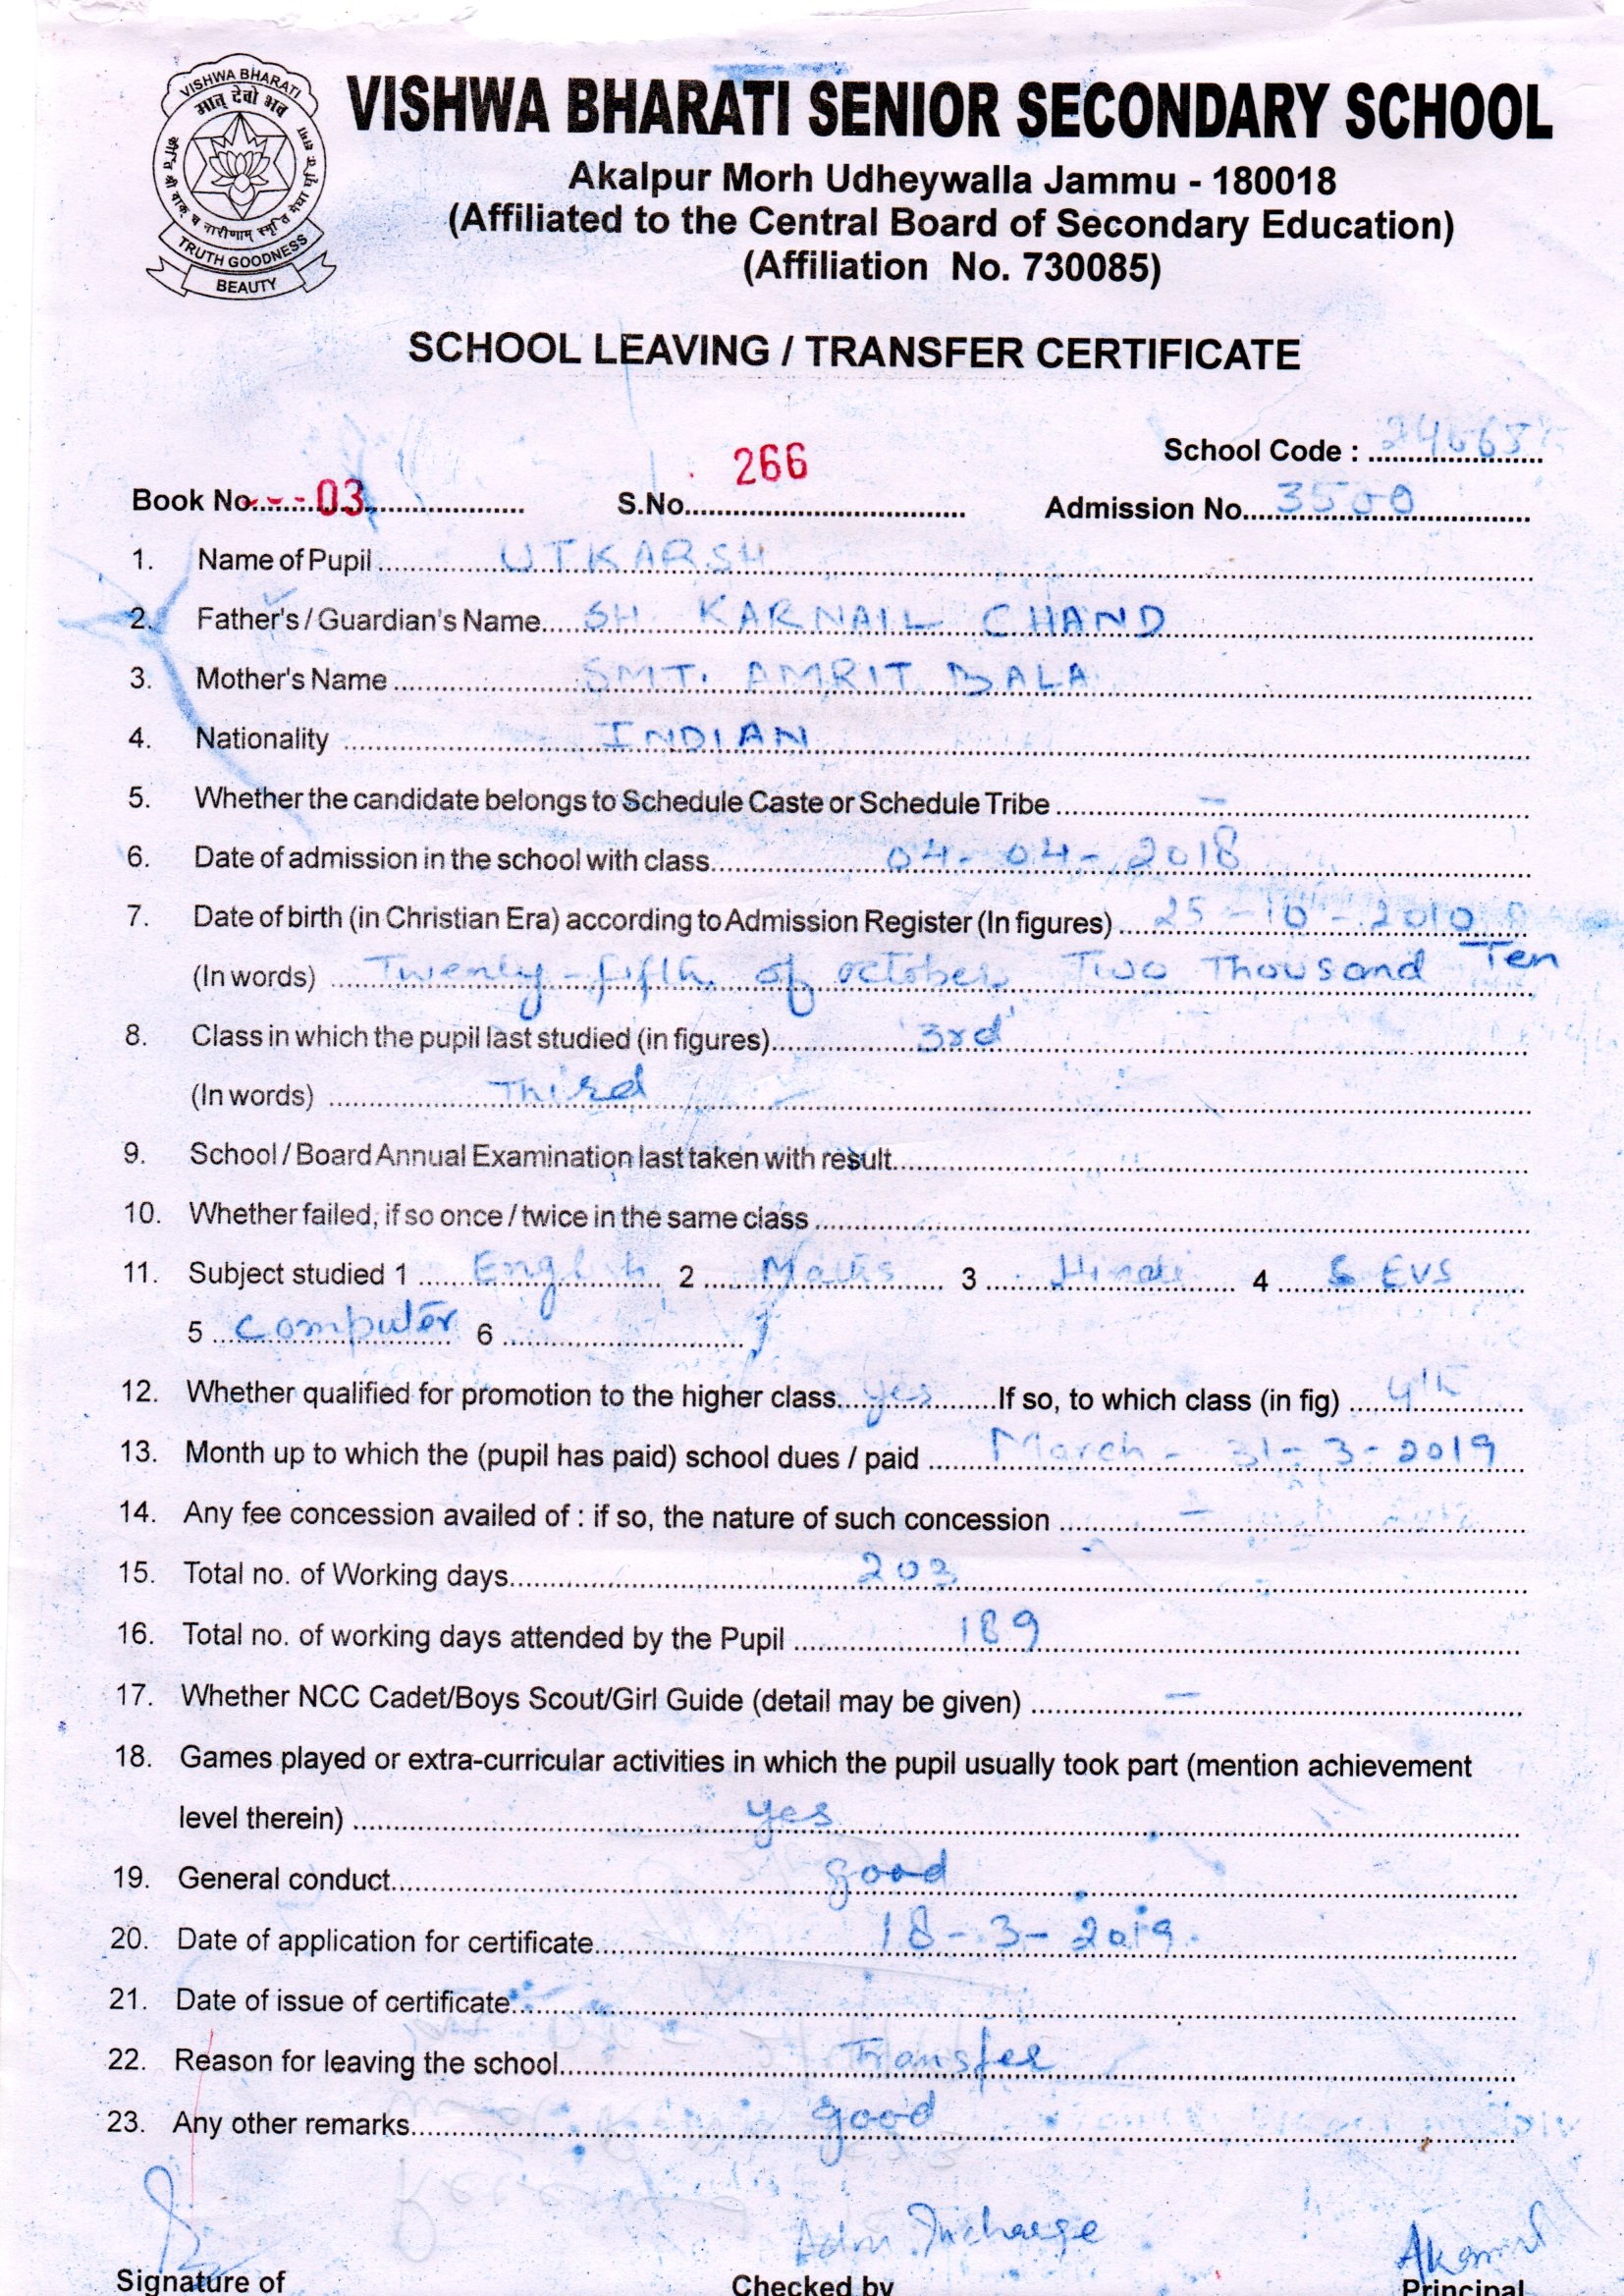 VISHWA BHARATI
मातृ देवो भव
TRUTH GOODNESS
BEAUTY
VISHWA BHARATI SENIOR SECONDARY SCHOOL
Akalpur Morh Udheywalla Jammu - 180018
(Affiliated to the Central Board of Secondary Education)
(Affiliation No. 730085)
SCHOOL LEAVING / TRANSFER CERTIFICATE
School Code :
Book No. 03 S.No. 266 Admission No. 3500
1. Name of Pupil UTKARSH
2. Father's / Guardian's Name SH. KARNAIL CHAND
3. Mother's Name SMT. AMRIT BALA
4. Nationality INDIAN
5. Whether the candidate belongs to Schedule Caste or Schedule Tribe –
6. Date of admission in the school with class 04-04-2018
7. Date of birth (in Christian Era) according to Admission Register (In figures) 25-10-2010
(In words) Twenty-fifth of october Two Thousand Ten
8. Class in which the pupil last studied (in figures) '3rd'
(In words) Third
9. School / Board Annual Examination last taken with result
10. Whether failed, if so once / twice in the same class
11. Subject studied 1 English 2 Maths 3 Hindi 4 EVS
5 Computer 6
12. Whether qualified for promotion to the higher class yes If so, to which class (in fig) 4th
13. Month up to which the (pupil has paid) school dues / paid March - 31-3-2019
14. Any fee concession availed of : if so, the nature of such concession –
15. Total no. of Working days 203
16. Total no. of working days attended by the Pupil 189
17. Whether NCC Cadet/Boys Scout/Girl Guide (detail may be given) –
18. Games played or extra-curricular activities in which the pupil usually took part (mention achievement
level therein) yes
19. General conduct good
20. Date of application for certificate 18-3-2019
21. Date of issue of certificate
22. Reason for leaving the school Transfer
23. Any other remarks good
Adm. Incharge
Signature of Checked by Principal